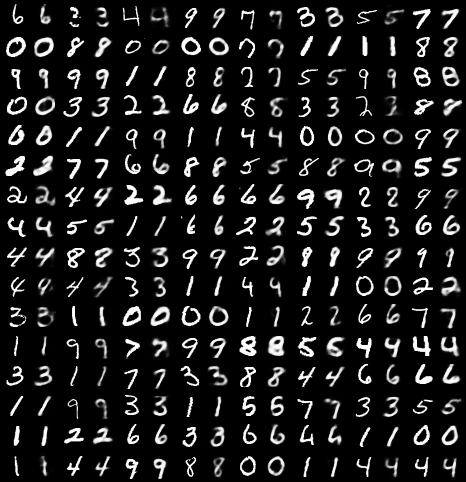 6 6 3 3 4 4 9 9 7 7 3 3 5 5 7 7
0 0 8 8 0 0 0 0 7 7 1 1 1 1 8 8
9 9 9 9 1 1 8 8 2 2 5 5 9 9 8 8
0 0 3 3 2 2 6 6 8 8 3 3 2 8 8
0 0 1 1 9 9 1 1 4 4 0 0 0 0 9 9
2 2 7 7 6 6 8 8 5 5 8 8 9 9 5 5
2 2 4 4 2 2 6 6 6 6 9 9 2 2 9 9
4 4 5 5 1 1 6 6 2 2 5 5 3 3 6 6
4 4 8 8 3 3 9 9 2 2 9 9 9 9
4 4 4 4 3 3 1 1 4 4 1 1 0 0 2 2
3 3 1 1 0 0 0 0 1 1 2 2 6 6 7 7
1 1 9 9 7 7 9 9 8 8 5 5 4 4 4 4
3 3 1 1 7 7 3 3 8 8 4 4 6 6 6 6
1 1 9 9 3 3 1 1 5 5 7 7 3 3 5 5
1 1 2 2 6 6 3 3 6 6 4 4 1 1 0 0
1 1 4 4 9 9 8 8 0 0 1 1 4 4 4 4